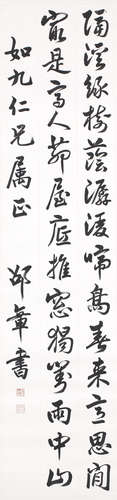 隔溪綠樹蔭潺湲啼鳥春來意思閒
最是高人茆屋底推窗獨對雨中山
如九仁兄属正 邵章書